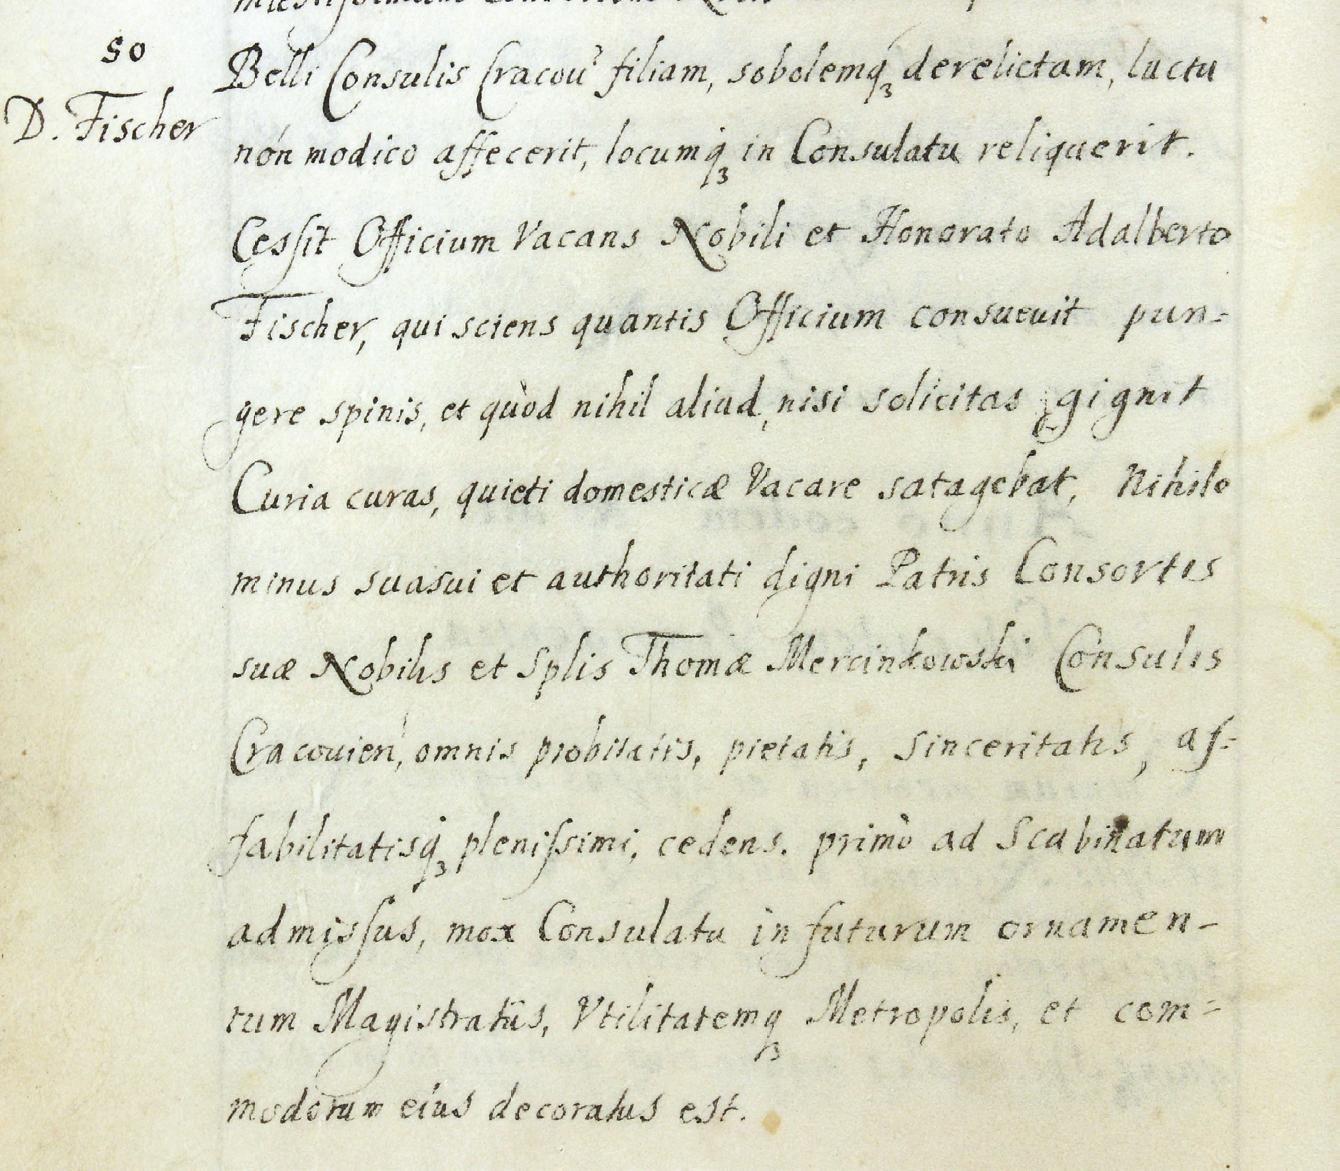 so
D. Fischer
Belli Consulis Cracou? filiam, sobolemq₃ derelictam, luctu
nón modico affecerit, locumq́₃ in Consulatu reliquerit.
Cesſit Officium Vacans Nobili et Honorato Adalberto
Fischer, qui sciens quantis Officium consueuit pun=
gere spinis, et quòd nihil aliud, nisi solicitas gignit
Curia curas, quieti domesticæ Vacare satagebat, Nihilo
minus suasui et authoritati digni Patris Consortis
suæ Nobilis et Splis Thomæ Mercinkowski Consulis
Cracouien', omnis probitatis, pietatis, sinceritatis, af=
fabilitatisq́₃ pleniſsimi, cedens. primò ad Scabinatum
admisſus, mox Consulatu in futurum ornamen-
tum Magistratûs, Vtilitatemq₃ Metropolis, et com=
modorum eius decoratus est.